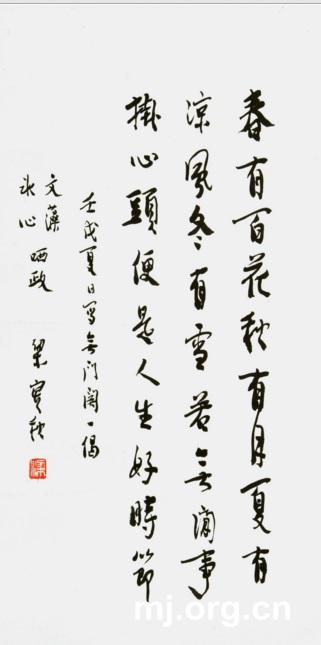 春有百花秋有月夏有
涼風冬有雪若無閒事
掛心頭便是人生好時節
壬戌夏日寫無門關一偈
文藻
冰心 哂政
梁實秋
mj.org.cn